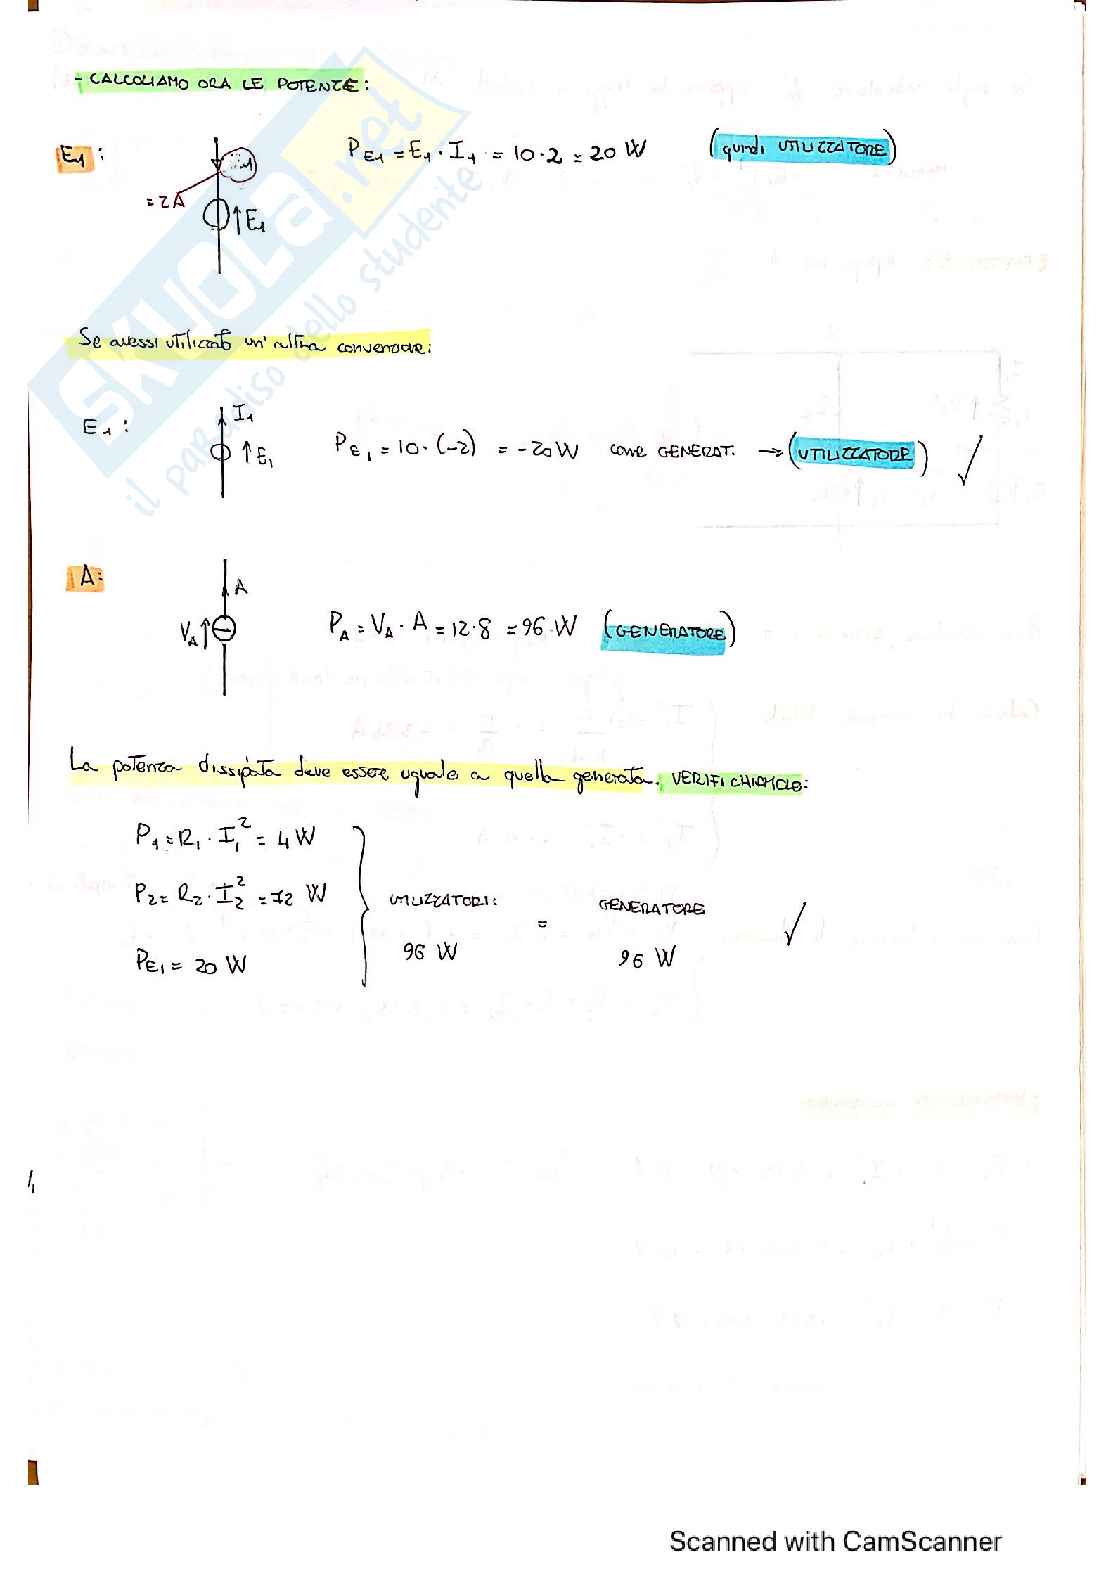 - CALCOLIAMO ORA LE POTENZE:
E1 : = 2A ↑E1 PE1 = E1 · I1 = 10·2 = 20 W (quindi UTILIZZATORE)
Se avessi utilizzato un'altra convenzione:
E1 : I1 ↑E1 PE1 = 10·(-2) = -20W come GENERAT. → (UTILIZZATORE) ✓
A: A VA↑ PA = VA · A = 12·8 = 96 W (GENERATORE)
La potenza dissipata deve essere uguale a quella generata. VERIFICHIAMOLO:
P1 = R1 · I1² = 4 W
P2 = R2 · I2² = 72 W
PE1 = 20 W
UTILIZZATORI:
96 W
=
GENERATORE
96 W
✓
SKUOLA.net
il paradiso dello studente
Scanned with CamScanner